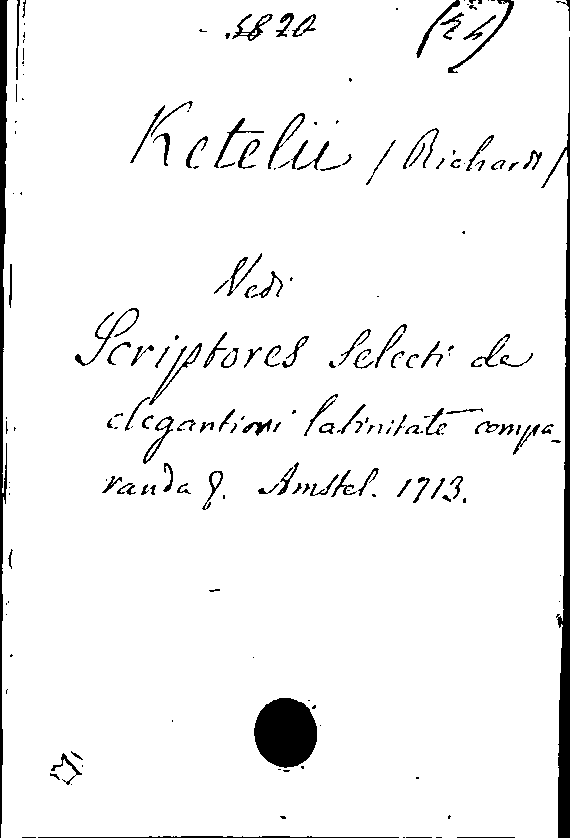 5820
Ketelii / Richardi /
Vedi
Scriptores Selecti de
elegantiori latinitate compa-
randa 8. Amstel. 1713.